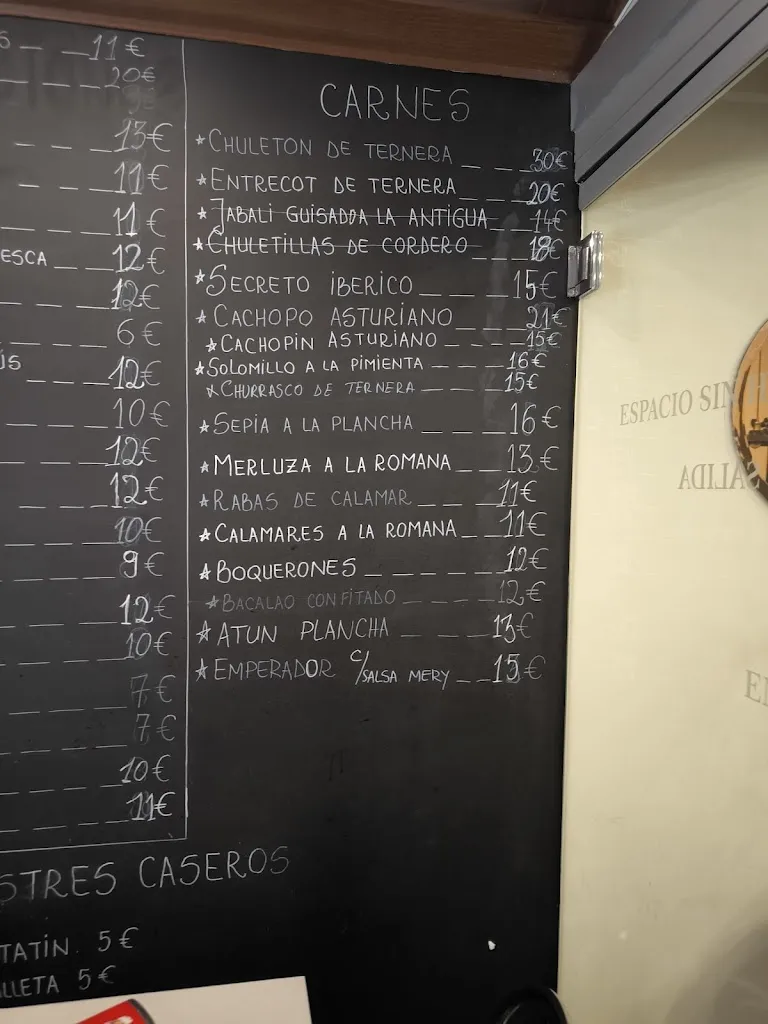 11€
20€
13€
11€
11€
ESCA 12€
12€
6€
12€
10€
12€
12€
10€
9€
12€
10€
7€
7€
10€
11€
CARNES
CHULETON DE TERNERA 30€
ENTRECOT DE TERNERA 20€
JABALI GUISADDA LA ANTIGUA 14€
CHULETILLAS DE CORDERO 18€
SECRETO IBERICO 15€
CACHOPO ASTURIANO 21€
CACHOPIN ASTURIANO 15€
SOLOMILLO A LA PIMIENTA 16€
CHURRASCO DE TERNERA 15€
SEPIA A LA PLANCHA 16€
MERLUZA A LA ROMANA 13€
RABAS DE CALAMAR 11€
CALAMARES A LA ROMANA 11€
BOQUERONES 12€
BACALAO CONFITADO 12€
ATUN PLANCHA 13€
EMPERADOR C/SALSA MERY 15€
STRES CASEROS
TATIN. 5€
LLETA 5€
ESPACIO SIN
SALIDA